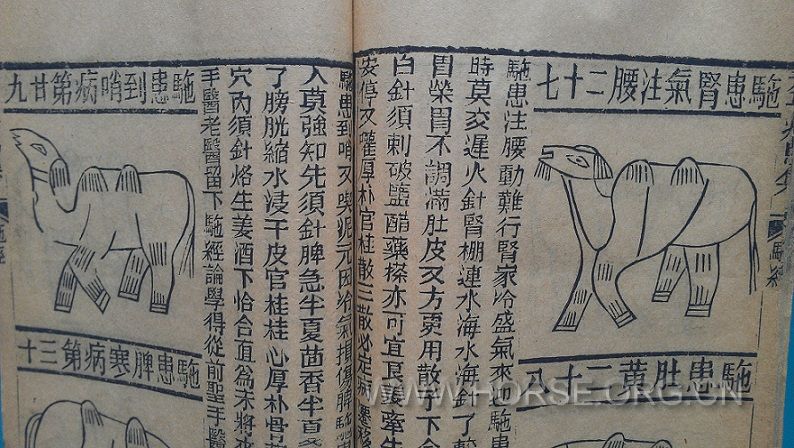 駞患腎氣注腰二十七
駞患注腰動難行腎家冷盛氣來迎駞患
時莫交遲火針腎棚連水海水海針了
胃柴胃不調滿肚皮又方更用散子下
白針須刺破鹽醋藥搽亦可宜
安停又厚朴官桂散三散必定
駞患肚黃二十八
駞患到哨又與泥元因冷氣損傷脾
入莫強知先須針脾急半夏茴香半
了膀胱縮水浸干皮官桂桂心厚朴骨
穴內須針烙生姜酒下恰合宜為未將
手醫老醫留下駞經論學得從前聖手醫
駞患到哨病第廿九
駞患脾寒病第三十
駞經
WWW.HORSE.ORG.CN